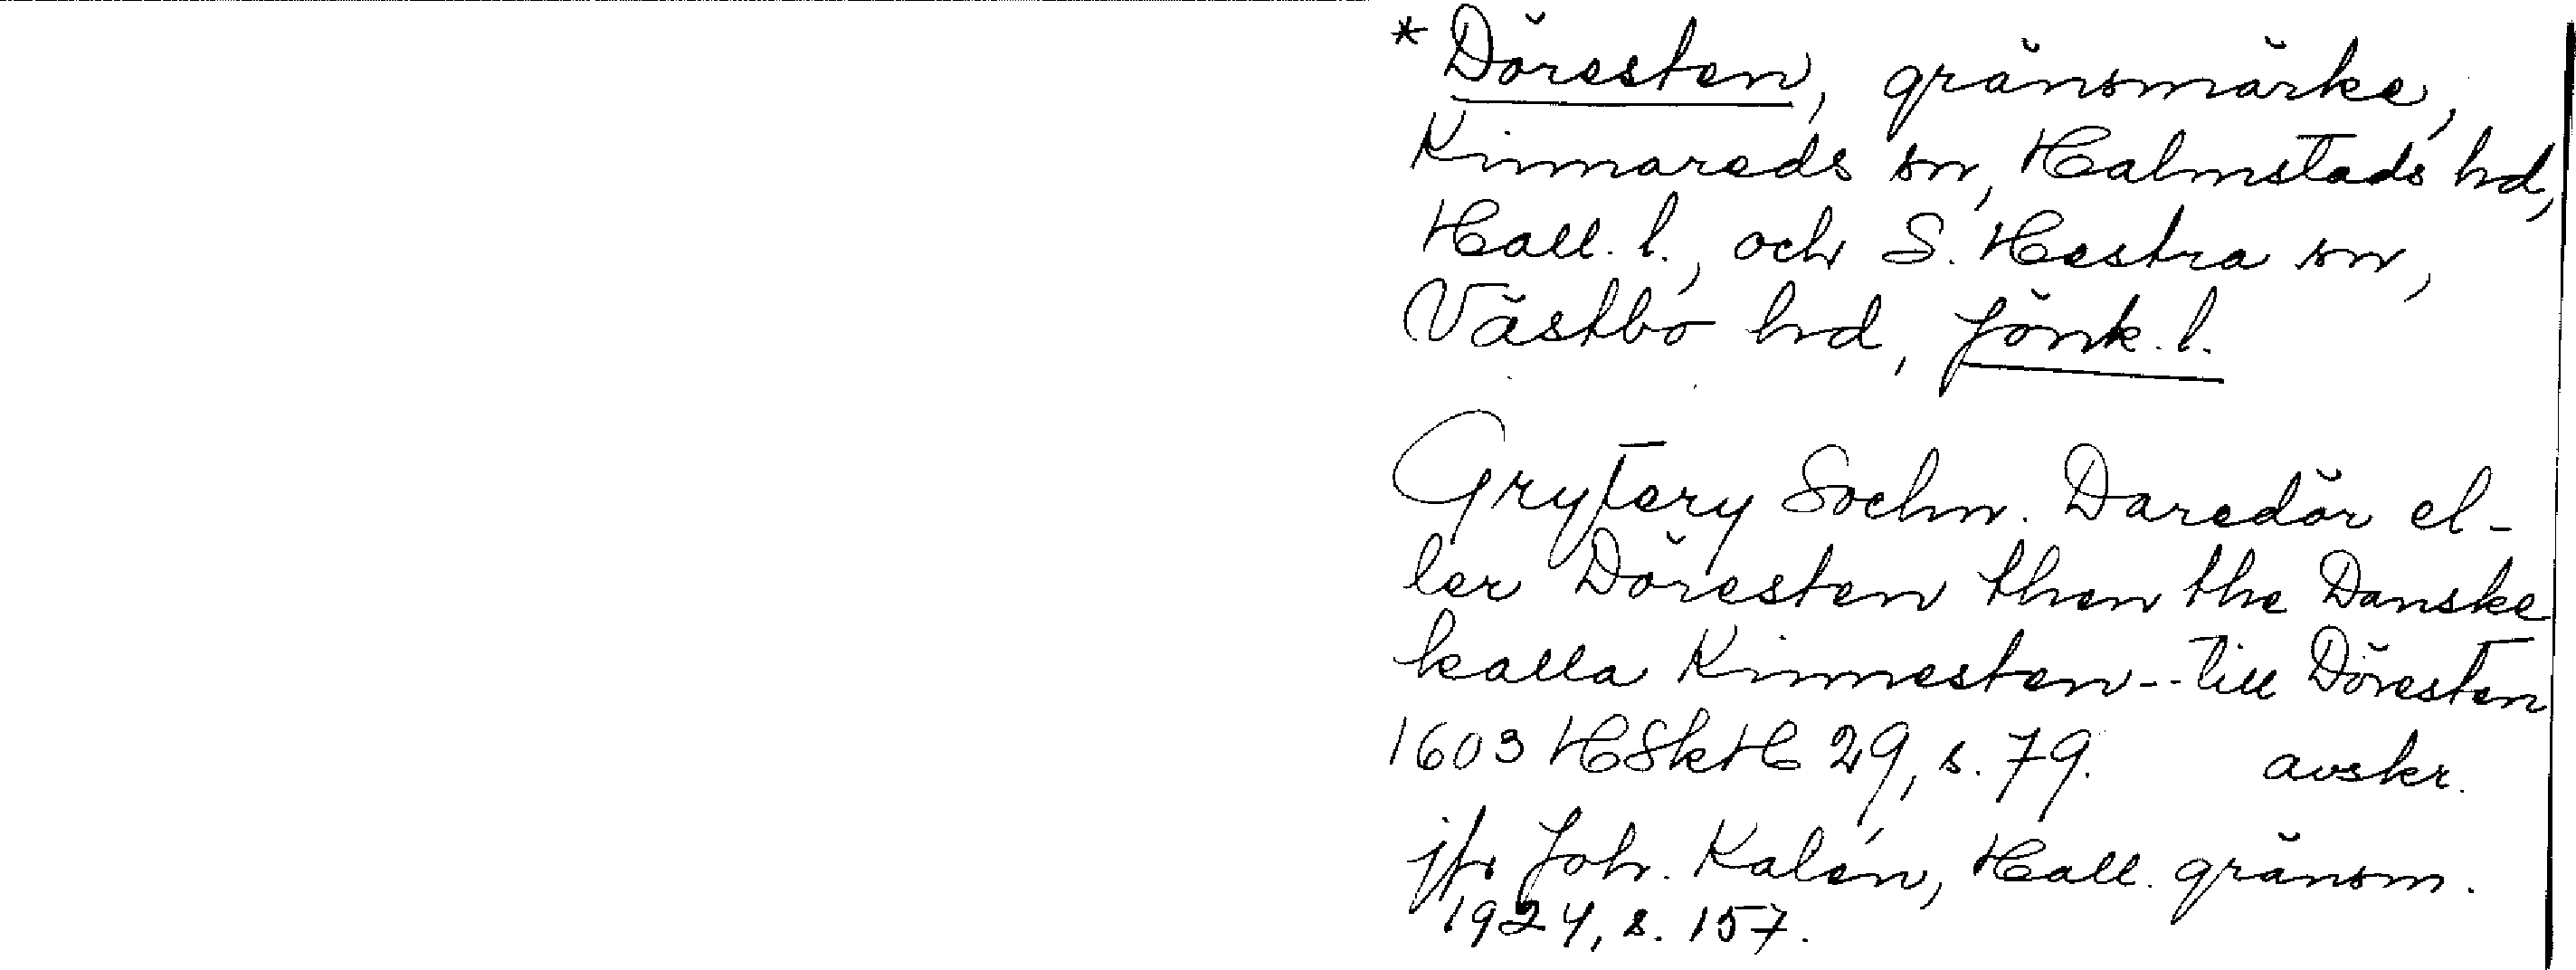 * Döresten, gränsmärke,
Kinnareds sn, Halmstads hd,
Hall. l., och S. Hestra sn,
Västbo hd, Jönk. l.
Grytery Sochn. Daredör el-
ler Döresten then the Danske
kalla Kinnesten -- till Döresten
1603 HSkH 29, s. 79. avskr.
jfr Joh. Kalén, Hall. gränsm.
1924, s. 157.